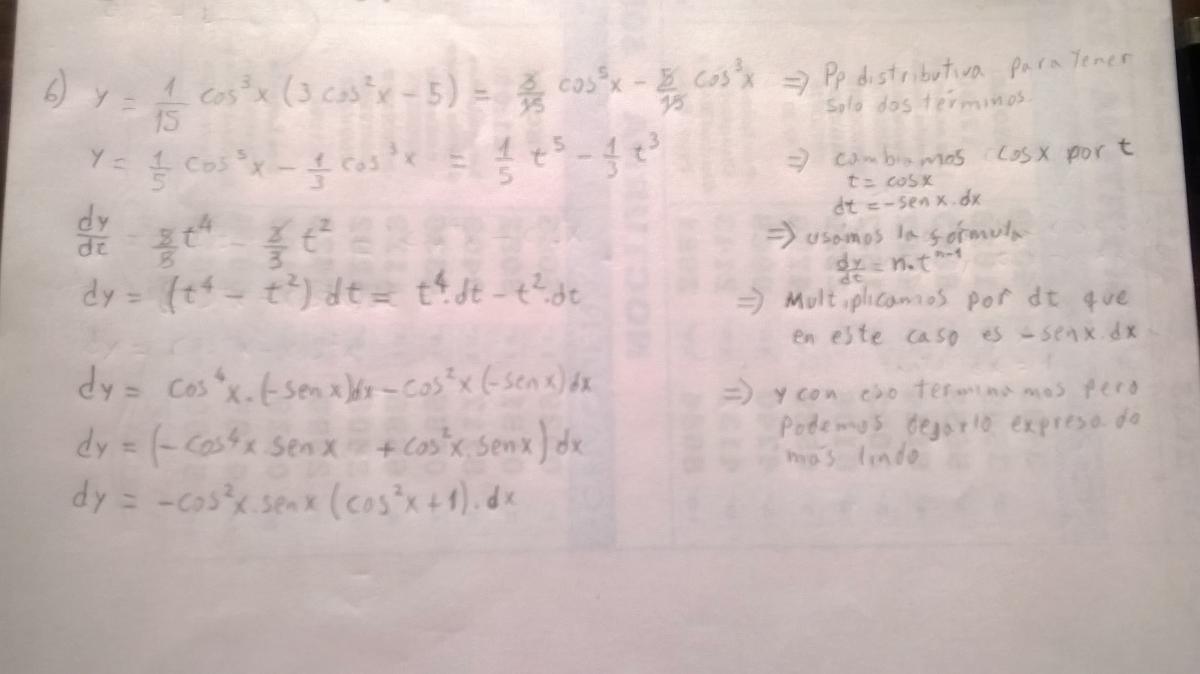 6) y = 1/15 cos³x (3 cos²x - 5) = 3/15 cos⁵x - 5/15 cos³x => Pp distributiva para tener
solo dos términos
y = 1/5 cos⁵x - 1/3 cos³x = 1/5 t⁵ - 1/3 t³ => cambiamos cosx por t
t = cosx
dt = -sen x.dx
dy/dt = 5/5 t⁴ - 3/3 t² = => usamos la fórmula
dy/dt = n.tⁿ⁻¹
dy = (t⁴ - t²) dt = t⁴.dt - t².dt => Multiplicamos por dt que
en este caso es -senx.dx
dy = cos⁴x.(-sen x)dx - cos²x (-sen x)dx => y con eso terminamos pero
podemos dejarlo expresado
más lindo
dy = (-cos⁴x.sen x + cos²x.senx) dx
dy = -cos²x.senx (cos²x + 1).dx